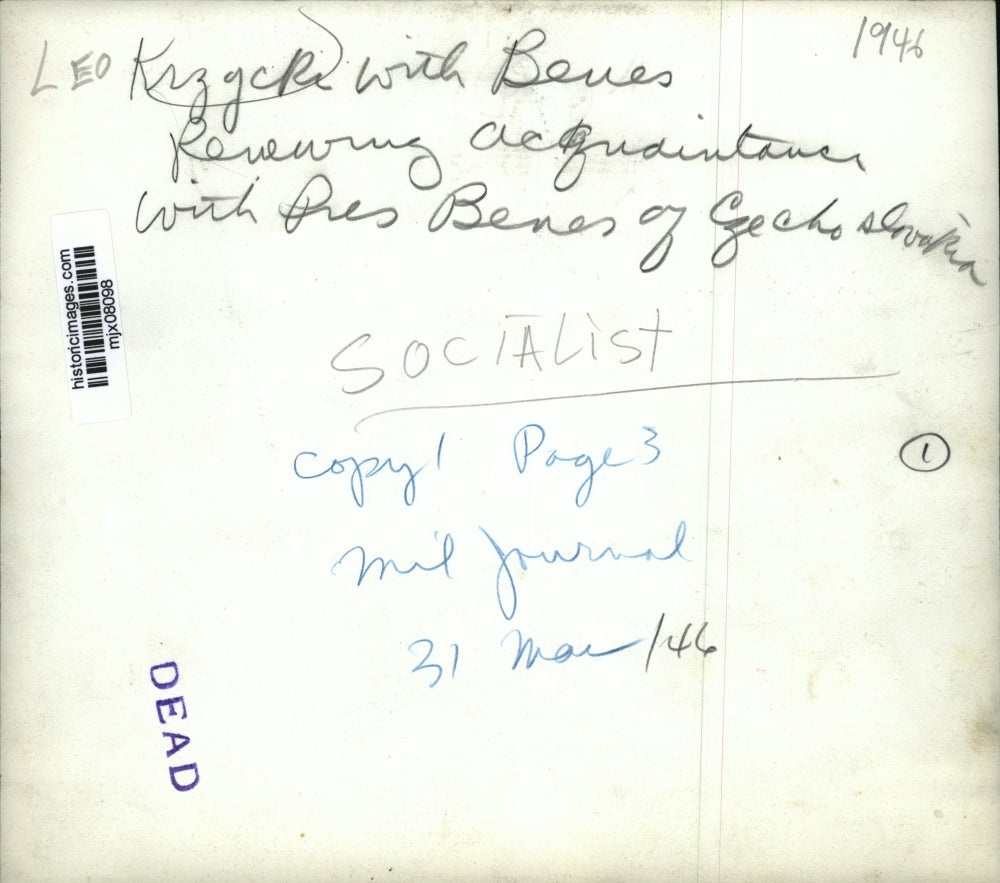 1946
LEO Krzycki with Benes
Renewing acquaintance
with Pres Benes of Czechoslovakia
historicimages.com
mjx08098
SOCIALIST
copy 1 Page 3
1
Mil Journal
31 Mar /46
DEAD